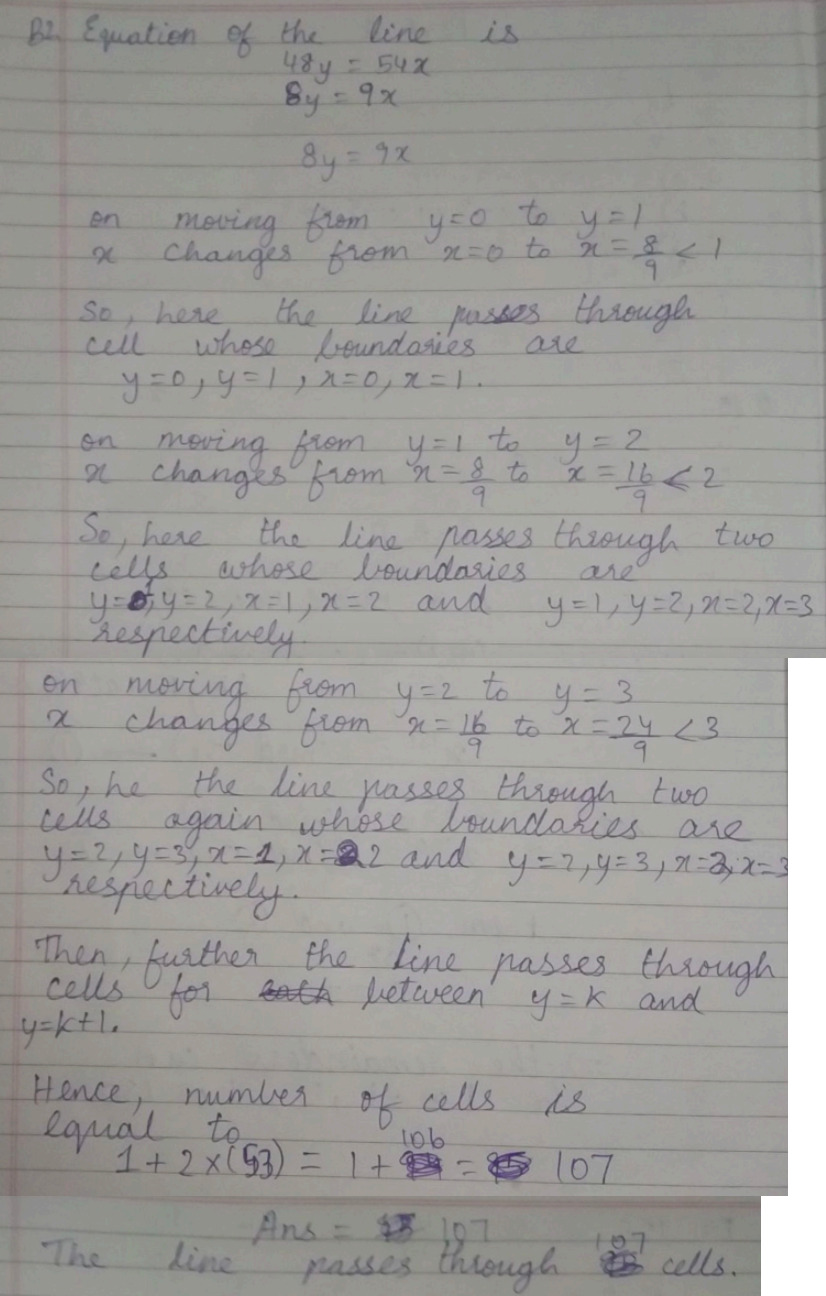 B2. Equation of the line is
48y = 54x
8y = 9x
8y = 9x
on moving from y=0 to y=1
x changes from x=0 to x = 8/9 < 1
So, here the line passes through
cell whose boundaries are
y=0, y=1, x=0, x=1.
on moving from y=1 to y=2
x changes from x = 8/9 to x = 16/9 < 2
So, here the line passes through two
cells whose boundaries are
y= y=2, x=1, x=2 and y=1, y=2, x=2, x=3
respectively.
on moving from y=2 to y=3
x changes from x = 16/9 to x = 24/9 < 3
So, he the line passes through two
cells again whose boundaries are
y=2, y=3, x=1, x=2 and y=2, y=3, x=2, x=3
respectively.
Then, further the line passes through
cells for between y=k and
y=k+1.
Hence, number of cells is
equal to
1 + 2×(53) = 1 + 106 = 107
Ans = 107
The line passes through 107 cells.